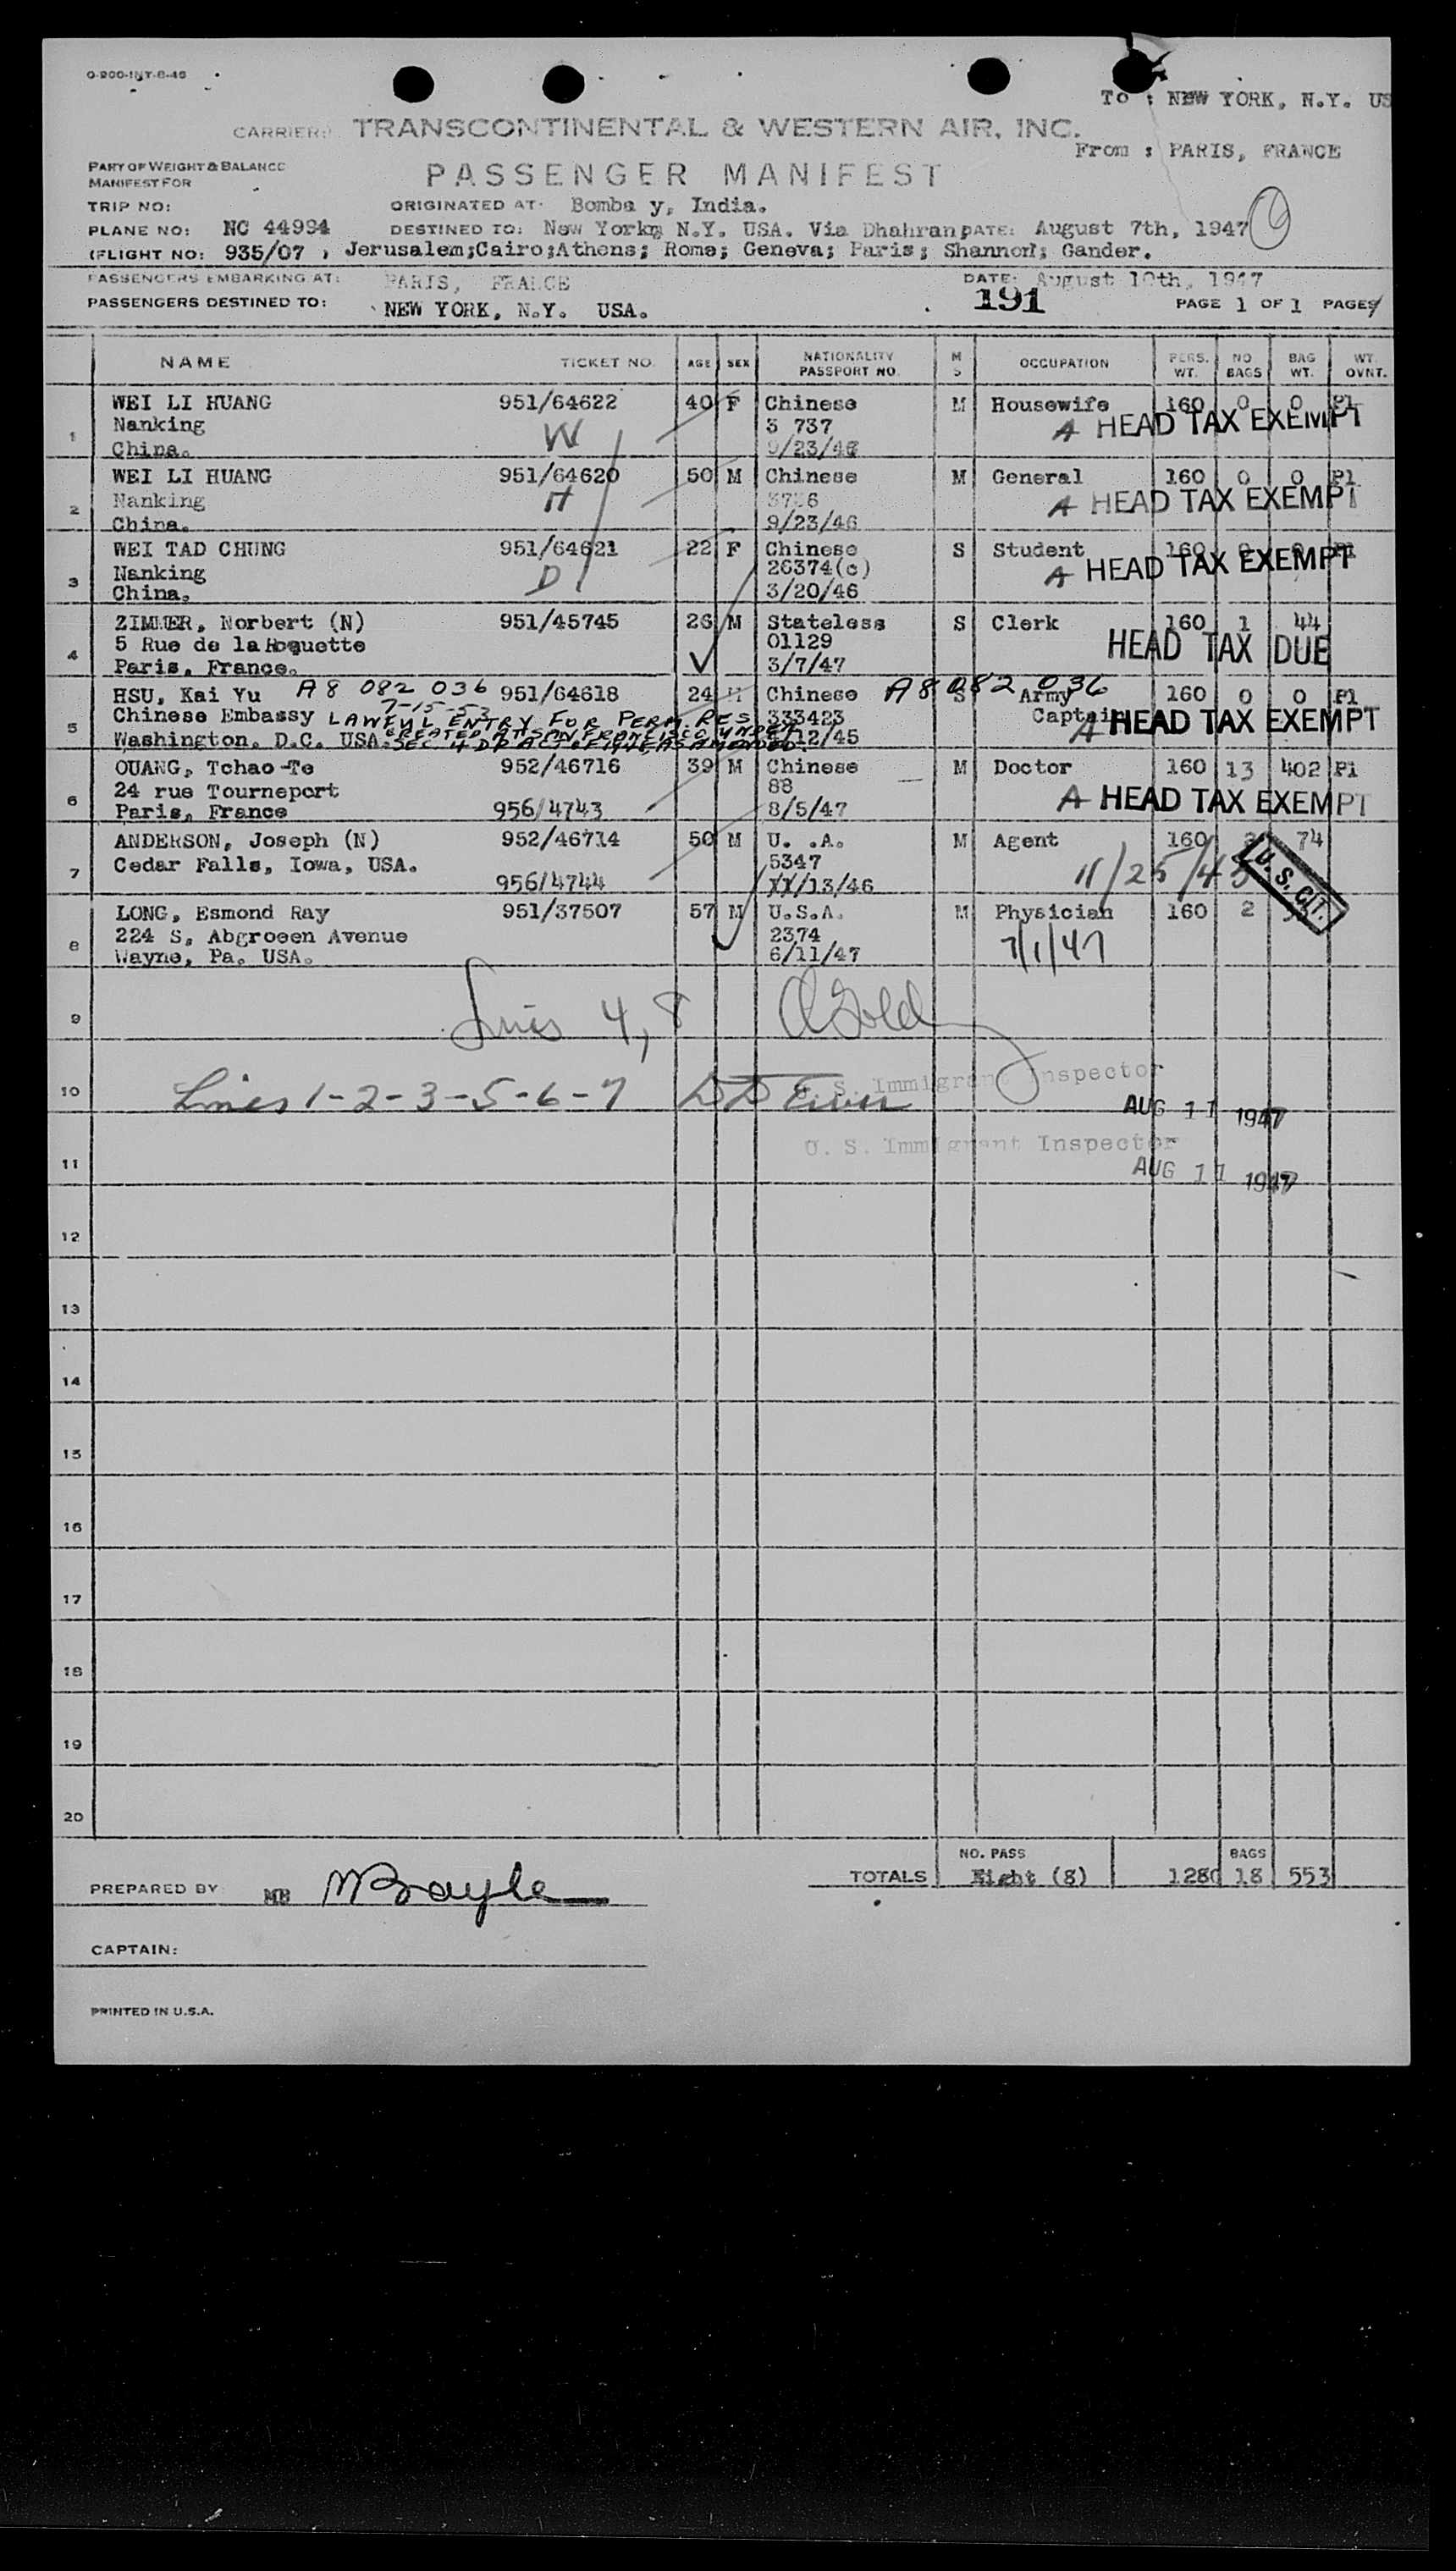 O-200-INT-8-46
To : NEW YORK, N.Y. US
CARRIER: TRANSCONTINENTAL & WESTERN AIR, INC.
From : PARIS, FRANCE
PART OF WEIGHT & BALANCE
MANIFEST FOR
PASSENGER MANIFEST
TRIP NO: ORIGINATED AT: Bomba y, India.
PLANE NO: NC 44994 DESTINED TO: New York, N.Y. USA. Via Dhahran, DATE: August 7th, 1947
(FLIGHT NO: 935/07 , Jerusalem;Cairo;Athens; Rome; Geneva; Paris; Shannon; Gander.
PASSENGERS EMBARKING AT: PARIS, FRANCE DATE: August 10th, 1947
PASSENGERS DESTINED TO: NEW YORK, N.Y. USA. 191 PAGE 1 OF 1 PAGES
NAME TICKET NO. AGE SEX NATIONALITY PASSPORT NO. M S OCCUPATION PERS. WT. NO. BAGS BAG WT. WT. OVNT.
WEI LI HUANG 951/64622 40 F Chinese M Housewife 160 0 0 Pl
Nanking W 3 737 A HEAD TAX EXEMPT
1 China. 9/23/46
WEI LI HUANG 951/64620 50 M Chinese M General 160 0 0 Pl
2 Nanking H A HEAD TAX EXEMPT
China. 9/23/46
WEI TAD CHUNG 951/64621 22 F Chinese S Student 160 Pl
Nanking D 26374(c) A HEAD TAX EXEMPT
3 China. 3/20/46
ZIMMER, Norbert (N) 951/45745 26 M Stateless S Clerk 160 1 44
5 Rue de la Roquette 01129 HEAD TAX DUE
4 Paris, France. 3/7/47
HSU, Kai Yu A8 082 036 951/64618 24 Chinese A8 082 036 S Army 160 0 0 Pl
7-15-53
Chinese Embassy LAWFUL ENTRY FOR PERM. RES. 333423 Captain A HEAD TAX EXEMPT
5 CREATED AT SAN FRANCISCO UNDER
Washington, D.C. USA. SEC 4 DP ACT OF 1948 AS AMENDED. 12/45
OUANG, Tchao-Te 952/46716 39 M Chinese M Doctor 160 13 402 Pl
24 rue Tourneport 88
6 Paris, France 956/4743 8/5/47 A HEAD TAX EXEMPT
ANDERSON, Joseph (N) 952/46714 50 M U. .A. M Agent 160 74
Cedar Falls, Iowa, USA. 5347 U.S. CIT.
7 956/4744 XX/13/46 11/25/45
LONG, Esmond Ray 951/37507 57 M U.S.A. M Physician 160 2
224 S, Abgroeen Avenue 2374
8 Wayne, Pa. USA. 6/11/47 7/1/47
9 Lines 4, 8
10 Lines 1-2-3-5-6-7 U. S. Immigrant Inspector
AUG 11 1947
11 U. S. Immigrant Inspector
AUG 11 1947
12
13
14
15
16
17
18
19
20
NO. PASS BAGS
TOTALS Eight (8) 1280 18 553
PREPARED BY: MB MBayle
CAPTAIN:
PRINTED IN U.S.A.